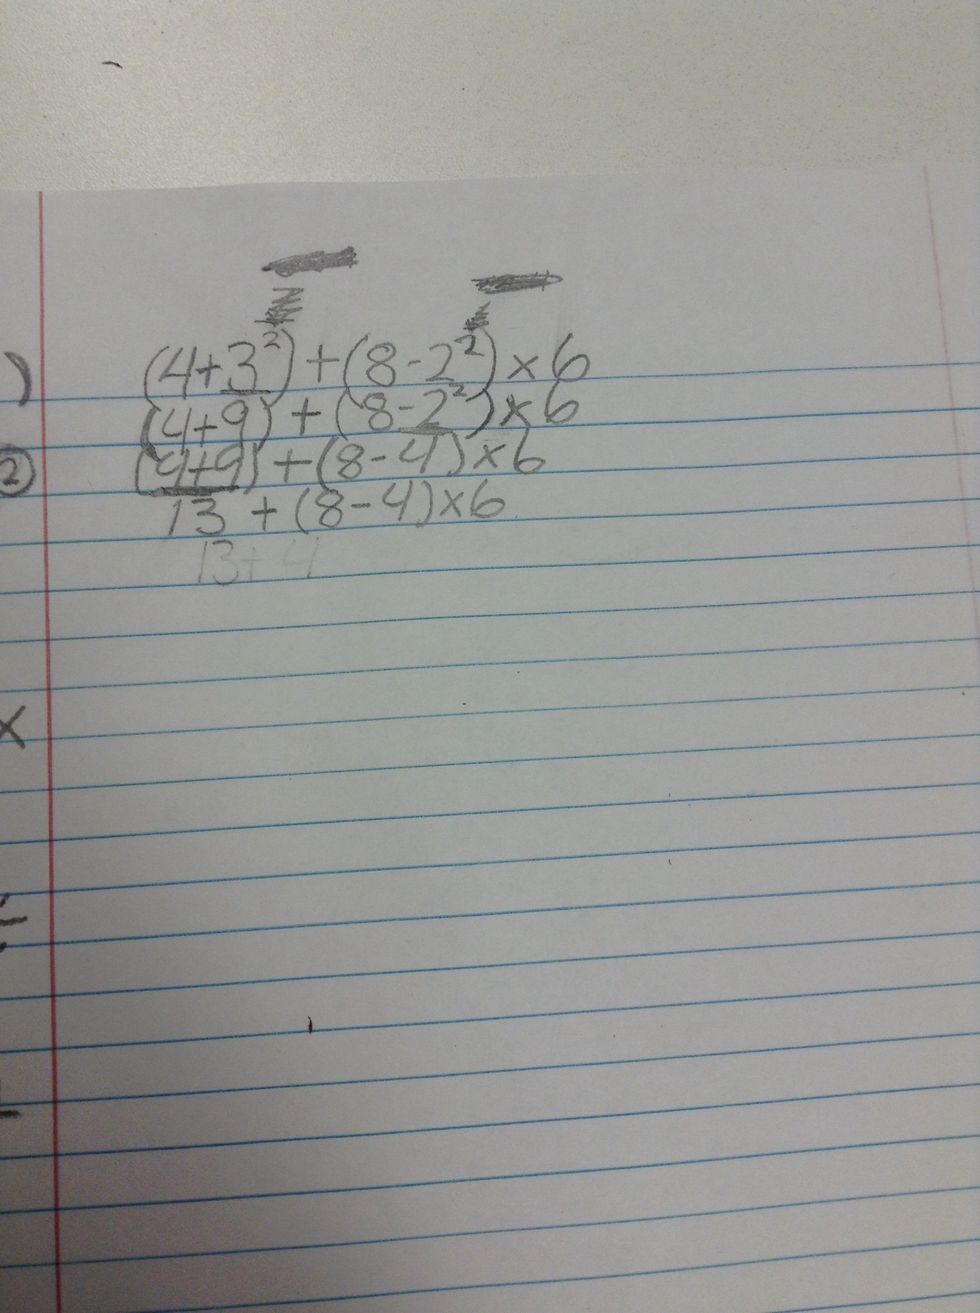 )
(4+3²)+(8-2²)×6
(4+9)+(8-2²)×6
② (4+9)+(8-4)×6
13+(8-4)×6
13+4
×